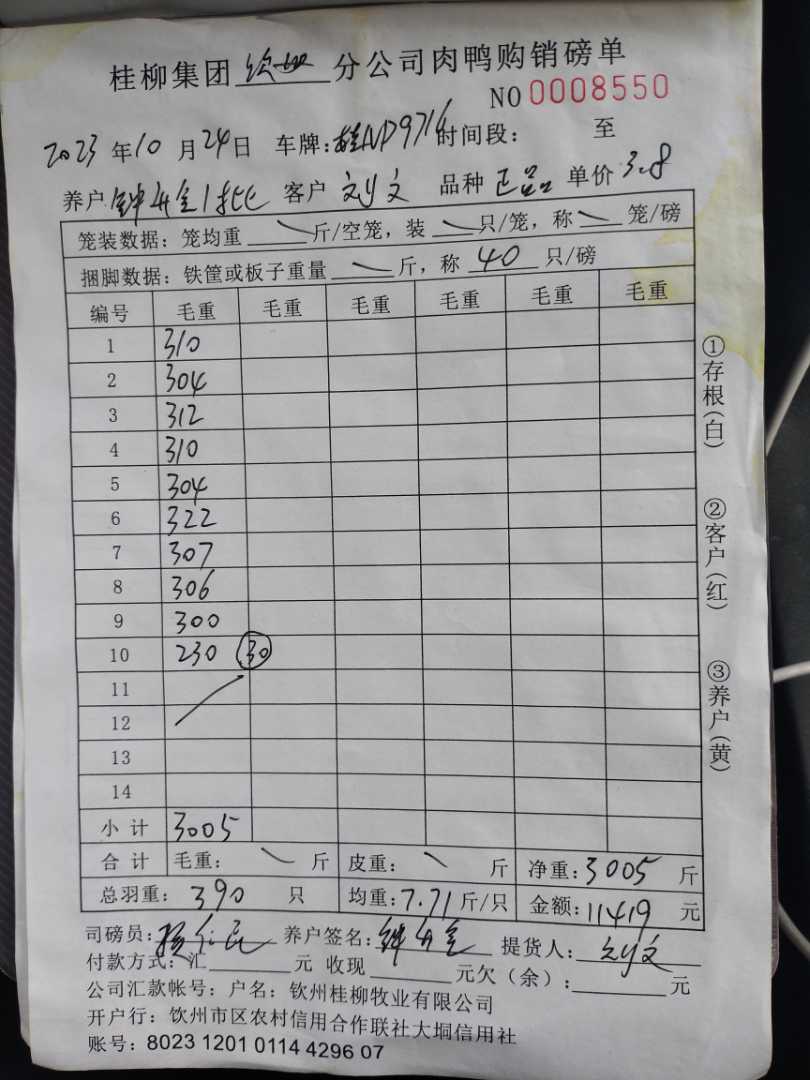 桂柳集团钦州分公司肉鸭购销磅单
NO 0008550
2023年10月24日 车牌:桂ND9716 时间段: 至
养户 钟 金1批 客户 刘文 品种 正品 单价 3.8
笼装数据:笼均重 斤/空笼,装 只/笼,称 笼/磅
捆脚数据:铁筐或板子重量 斤,称 40 只/磅
编号 毛重 毛重 毛重 毛重 毛重 毛重
1 310
2 304
3 312
4 310
5 304
6 322
7 307
8 306
9 300
10 230 30
11
12
13
14
小计 3005
合计 毛重: 斤 皮重: 斤 净重:3005 斤
总羽重: 390 只 均重:7.71 斤/只 金额:11419 元
司磅员: 养户签名:钟 金 提货人:刘文
付款方式:汇 元 收现 元欠(余): 元
公司汇款帐号:户名:钦州桂柳牧业有限公司
开户行:饮州市区农村信用合作联社大垌信用社
账号:8023 1201 0114 4296 07
①存根(白)
②客户(红)
③养户(黄)